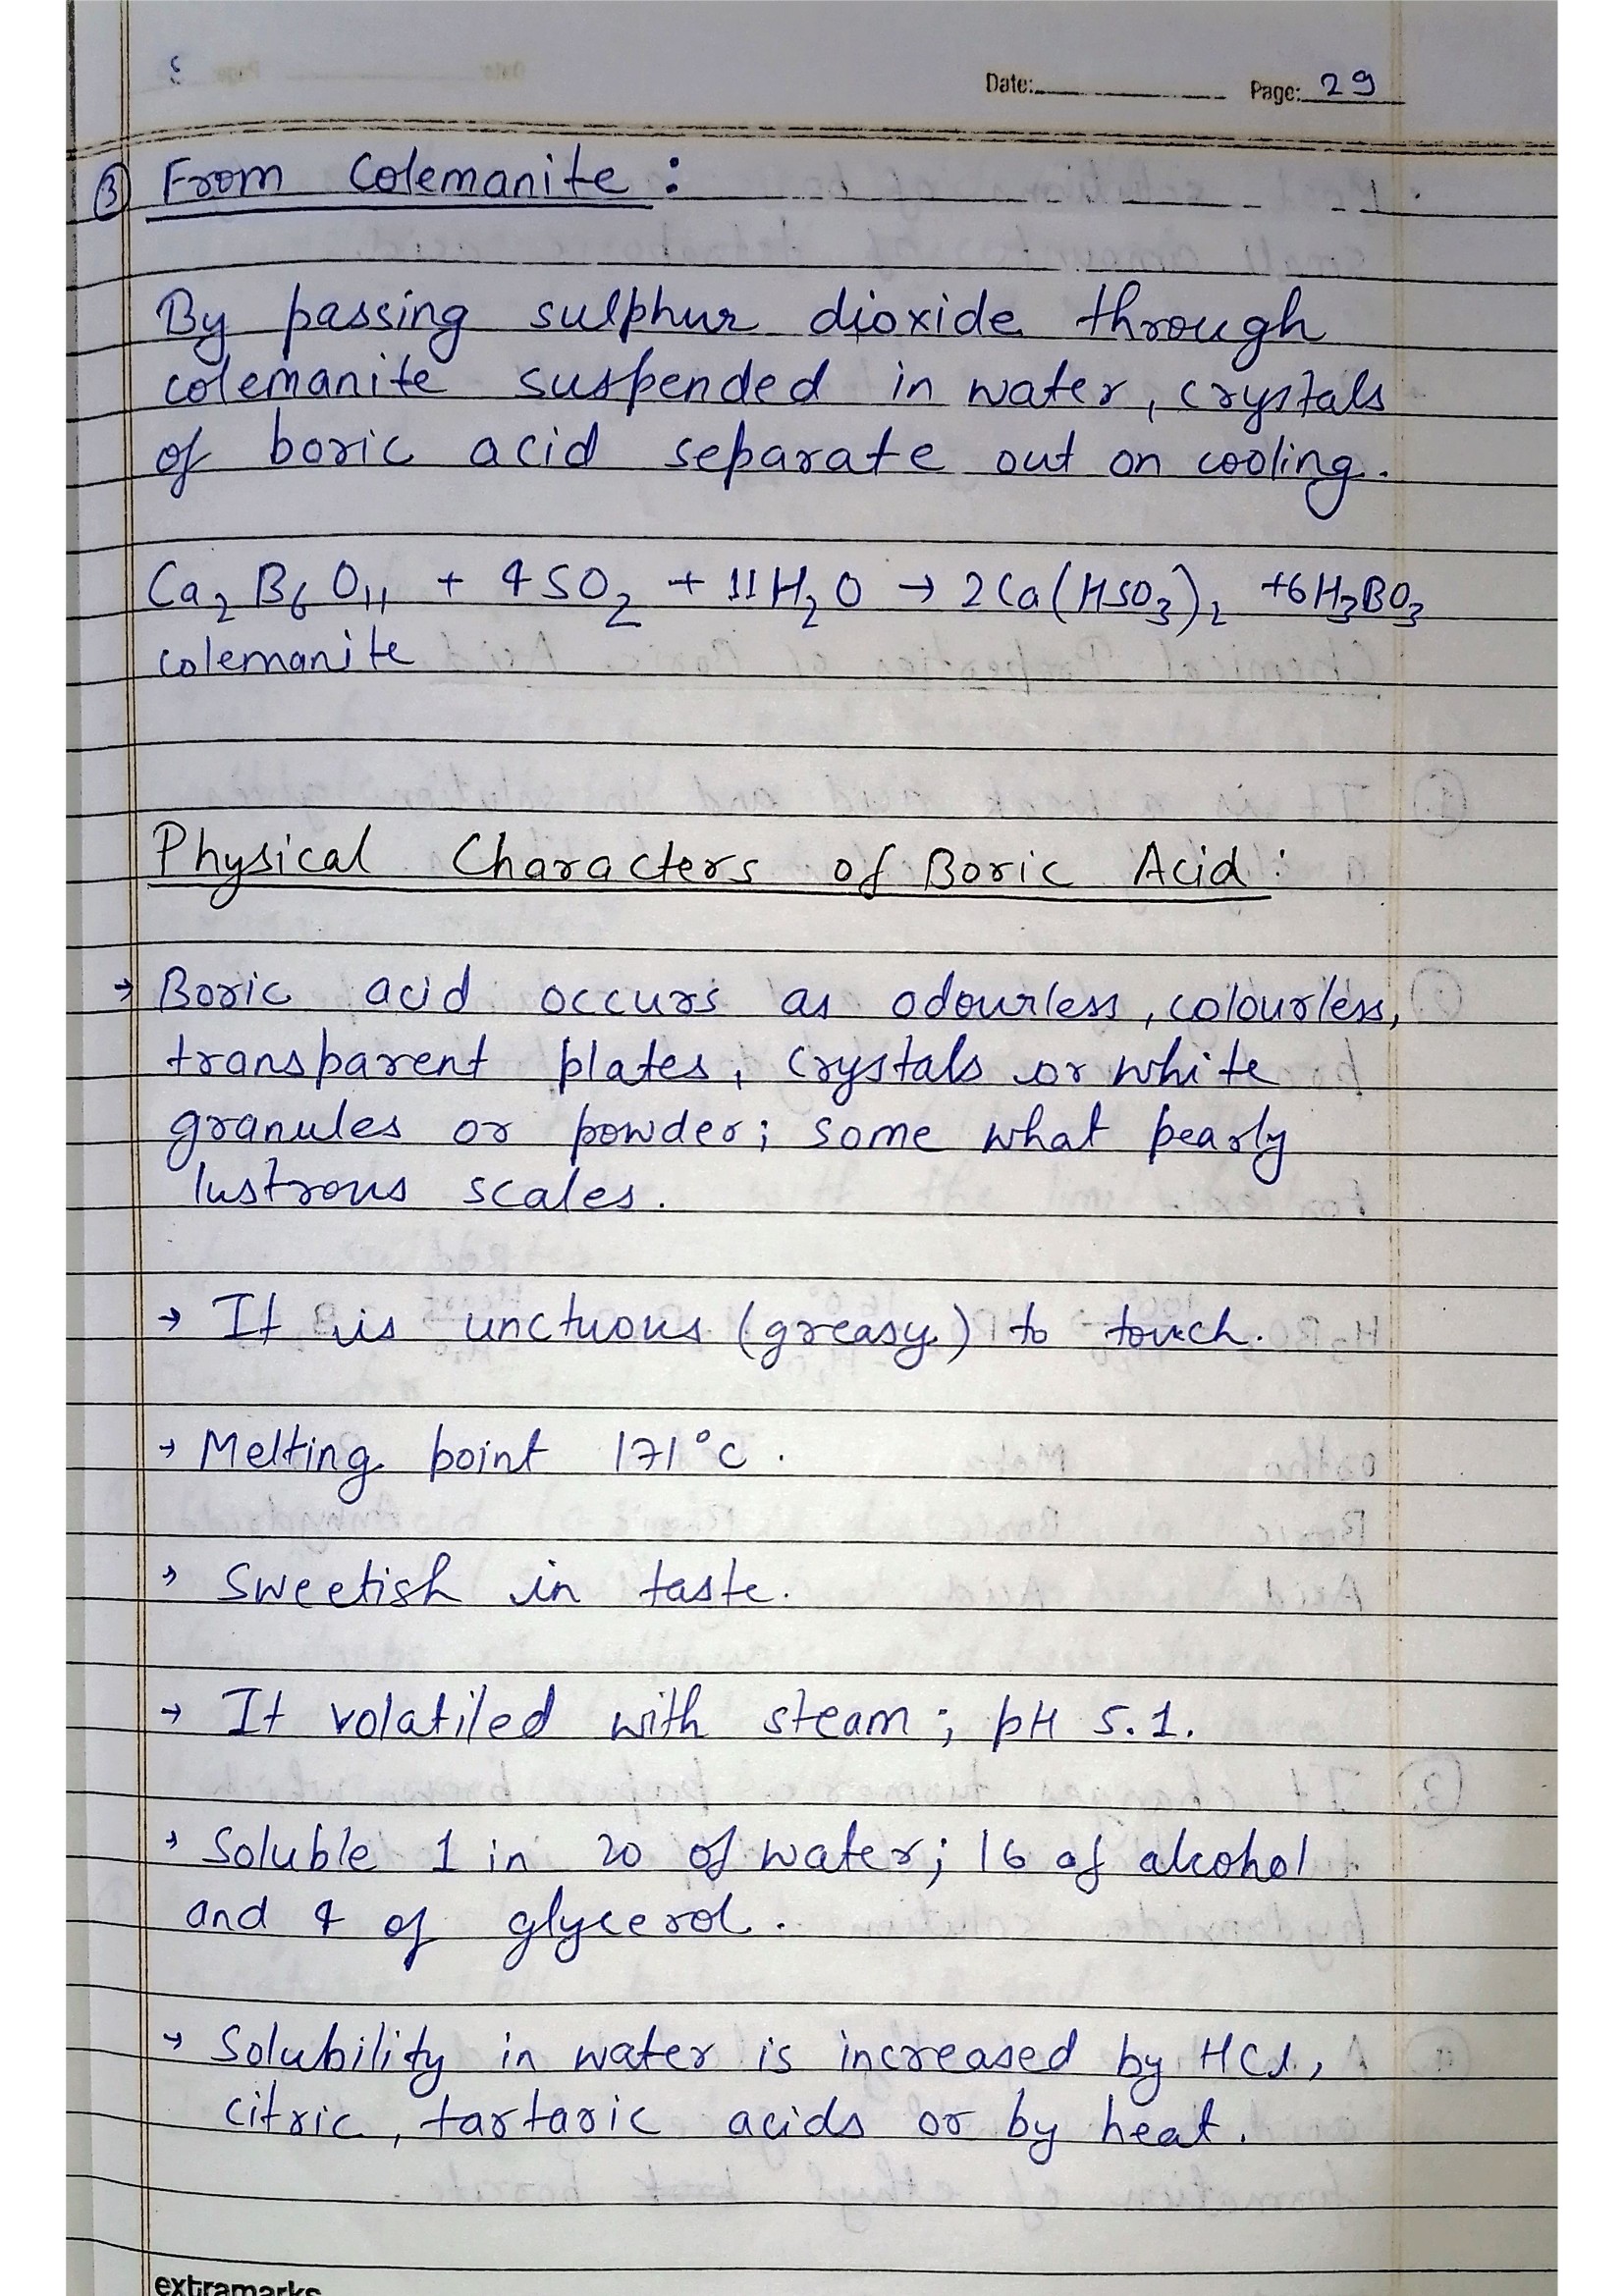 Date: Page: 29
③ From Colemanite :
By passing sulphur dioxide through
colemanite suspended in water, crystals
of boric acid separate out on cooling.
Ca₂B₆O₁₁ + 4SO₂ + 11H₂O → 2Ca(HSO₃)₂ +6H₃BO₃
colemanite
Physical Characters of Boric Acid :
→ Boric acid occurs as odourless, colourless,
transparent plates, crystals or white
granules or powder; some what pearly
lustrous scales.
→ It is unctuous (greasy) to touch.
→ Melting point 171°C.
→ Sweetish in taste.
→ It volatiled with steam; pH 5.1.
→ Soluble 1 in 20 of water; 16 of alcohol
and 4 of glycerol.
→ Solubility in water is increased by HCl,
citric, tartaric acids or by heat.
extramarks